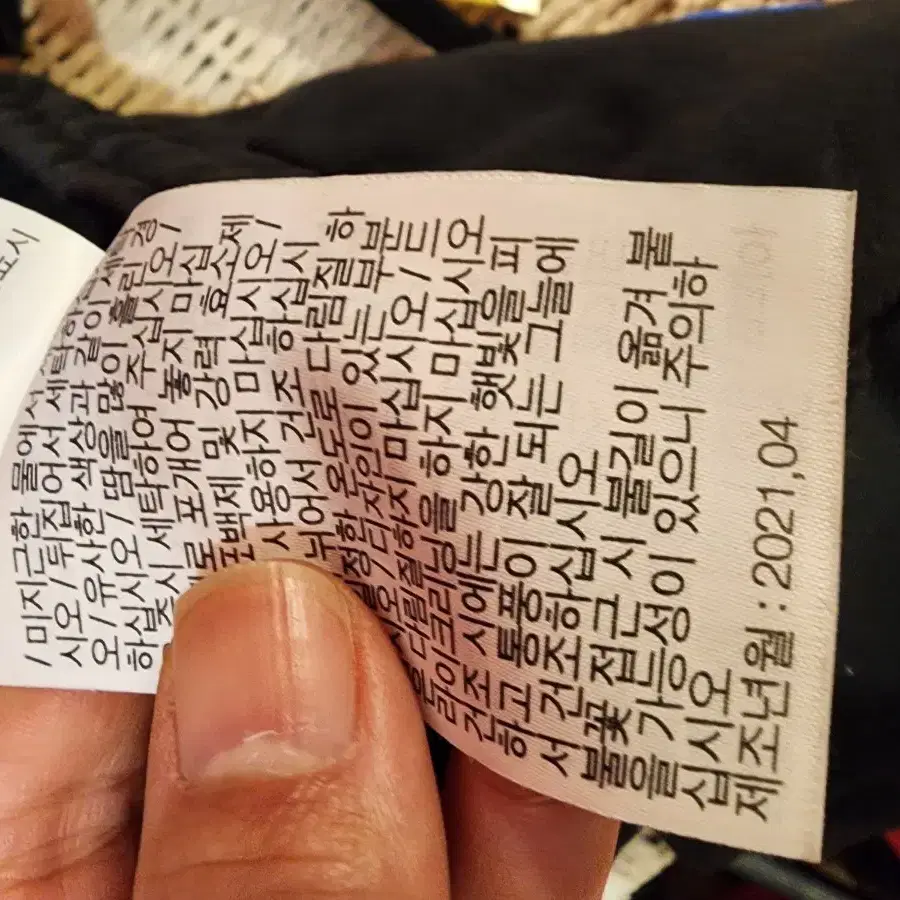 표시
/ 미지근한 물에서
시오 / 뒤집어서 세탁하십
오 / 유사한 색상과 같이 세탁
하십시오 / 땀을 많이 흘린 경
즉시 세탁하여 주십시오 /
로 포개어 놓지 마십
표백제 및 강력 효소제
사용하지 마십시오 /
뉘어서 건조 하십시
온도로 다림질 하
디자인이 있는 부분
다림질하지 마십시오 / 드
라이크리닝을 하지 마십시오
건조 시에는 강한 햇빛을 피
하고 통풍이 잘 되는 그늘에
서 건조하십시오
불꽃 접근시 불길이 옮겨 붙
을 가능성이 있으니 주의하
십시오
제조년월 : 2021,04